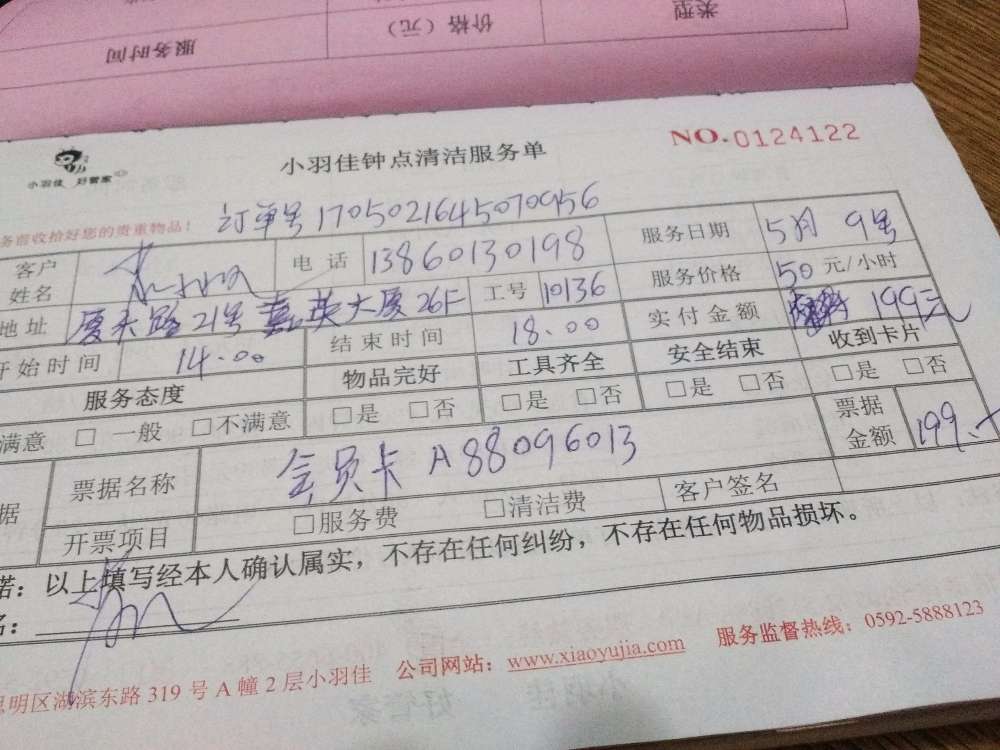 服务时间 价格（元） 类型
小羽佳 好管家
小羽佳钟点清洁服务单
NO.0124122
务首收拾好您的贵重物品！
订单号1705021645070956
客户姓名 电话 13860130198 服务日期 5月9号
地址 厦禾路21号嘉英大厦26F 工号 10136 服务价格 50元/小时
开始时间 14.00 结束时间 18.00 实付金额 199元
服务态度 物品完好 工具齐全 安全结束 收到卡片
满意 □ 一般 □不满意 □是 □否 □是 □否 □是 □否 □是 □否
据 票据名称 会员卡 A88096013 票据金额 199.-
开票项目 □服务费 □清洁费 客户签名
诺：以上填写经本人确认属实，不存在任何纠纷，不存在任何物品损坏。
名：
思明区湖滨东路319号A幢2层小羽佳 公司网站：www.xiaoyujia.com 服务监督热线：0592-5888123